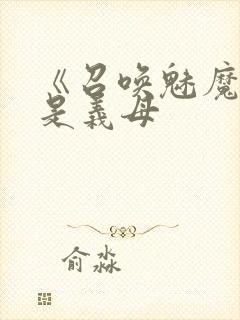 《召唤魅魔
是义母
俞淼